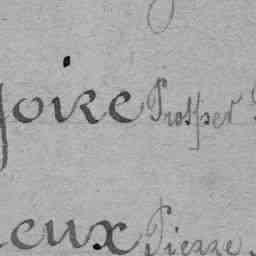 oire Prosper
eux Pierre